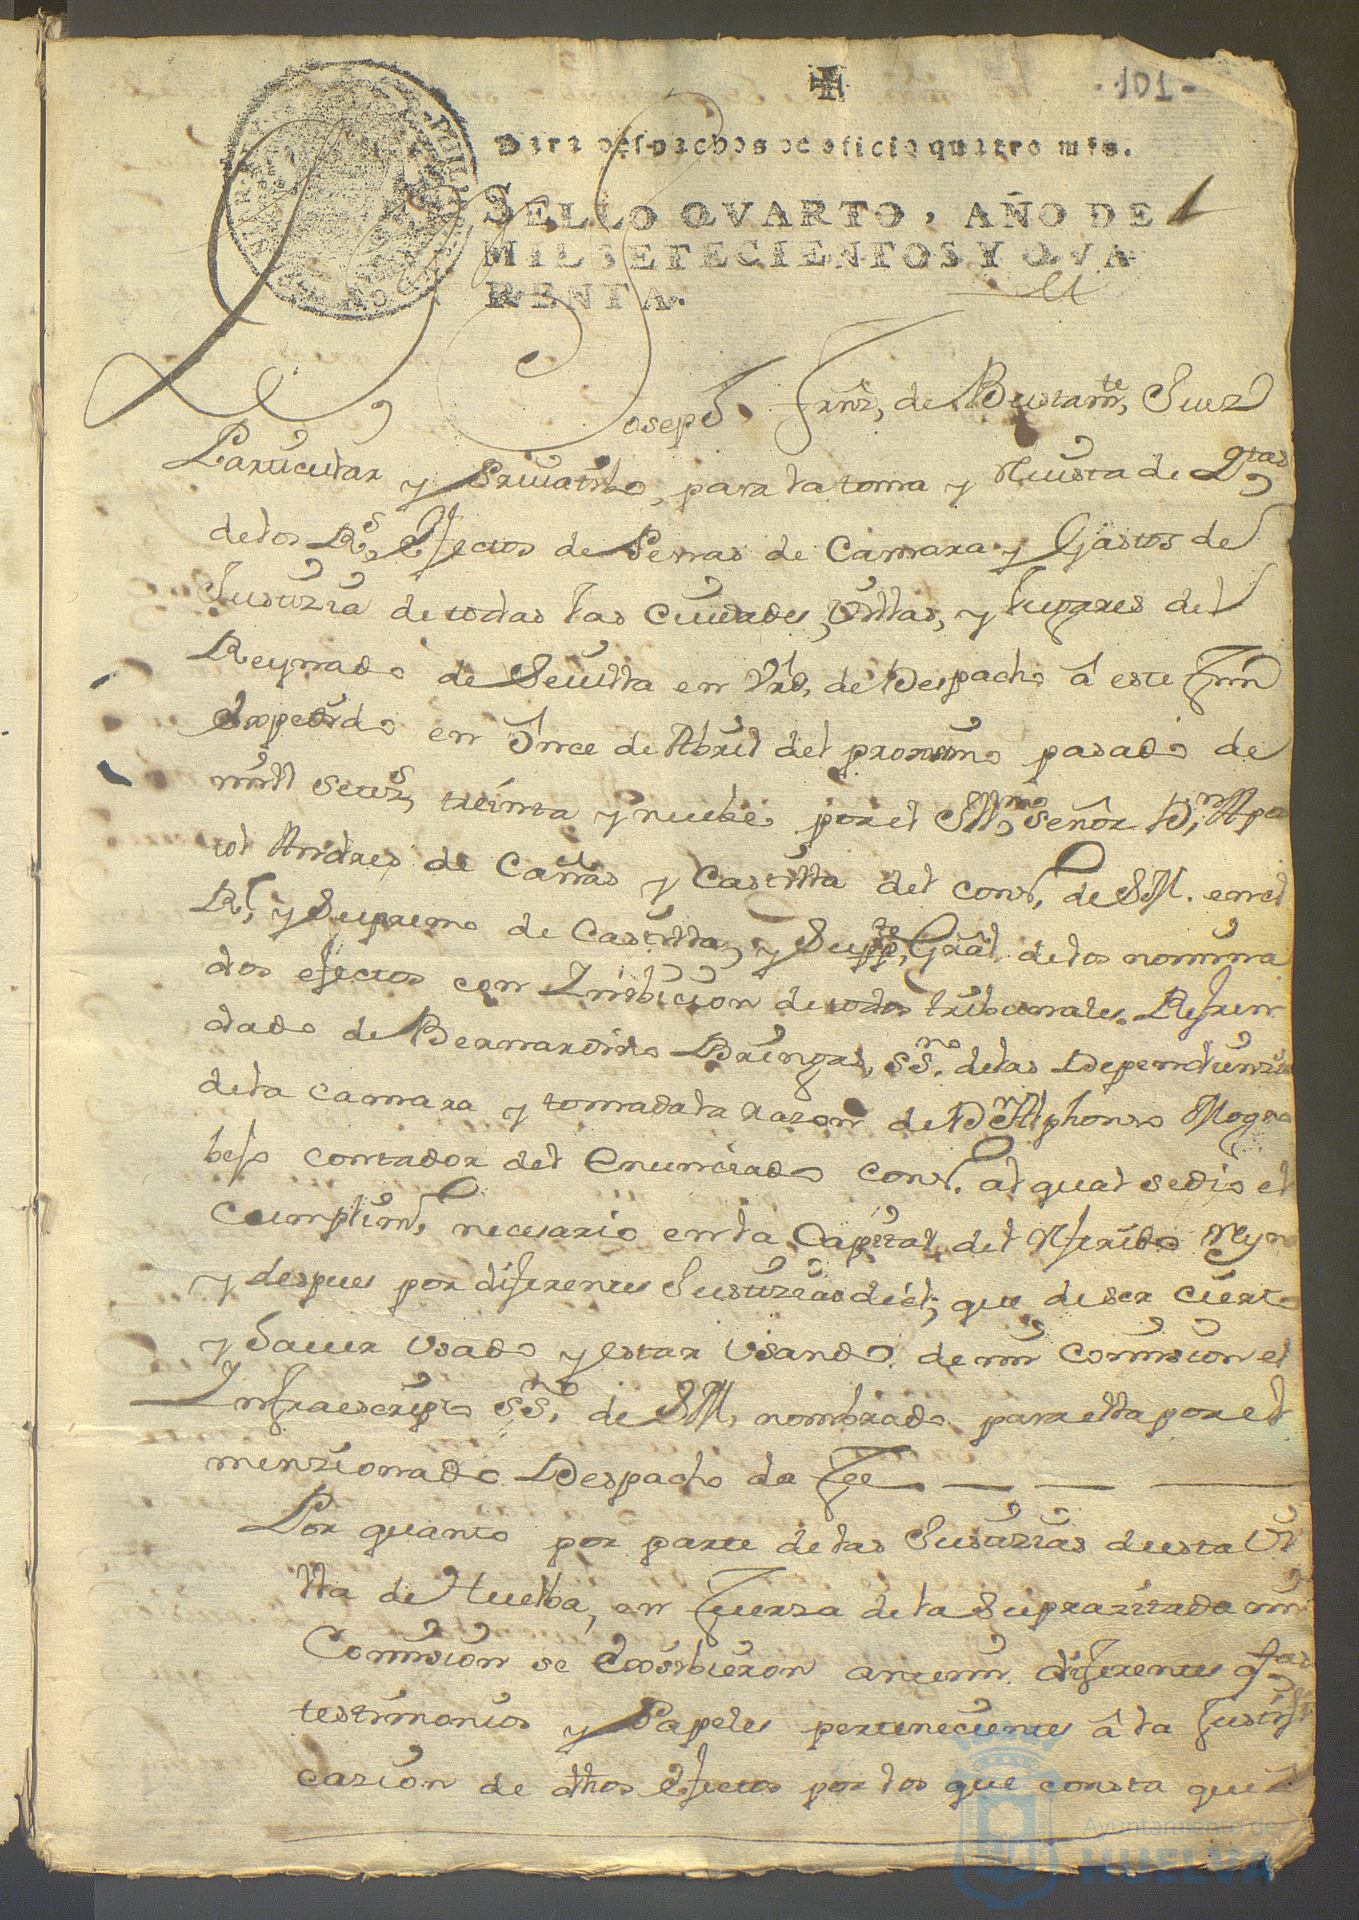 101
Para despachos de oficio quatro mrs.
SELLO QVARTO, AÑO DE
MIL SETECIENTOS Y QVA
RENTA.
Joseph Frnz, de Bustamte, Juez
Particular y Privatibo, para la toma y Reuista de Qtas
de los Rs. Efectos de Penas de Camara y Gastos de
Justizia de todas las Ciudades, Villas, y lugares del
Reynado de Seuilla en Vrd, de Despacho â este Fin
Expedido en Once de Abril del proximo pasado de
mill setezs, treinta y nuebe por el Yllmo Señor Dn, Apos
tol Andres de Cañas y Castilla del Cons, de S.M. en el
Rl, y Supremo de Castilla, y Suppte, Gral de los nomina
dos efectos con Inibicion de todos tribunales. Refren
dado de Bernardino Bringas, ssno. de las Dependienzias
de la Camara y tomada la razon de Dn Alphonso Mogro
bejo contador del Enunciado Cons. al qual se dio el
Cumplimto, necesario en la Capital del Referido Reyno
y despues por diferentes Justizias de el, que de ser cierto
y hauer Vsado y estar Vsando de mi Comision el
Infraescripto ssno. de S.M, nombrado para ella por el
menzionado Despacho da Fee
Por quanto por parte de las Justizias desta Vi
lla de Huelba, en Fuerza de la Suprazitada mi
Comision se Exsibieron antemi diferentes qtas
testimonios y Papeles pertenecientes â la Justifi
cazion de dhos Efectos por los que consta que
Ayuntamiento de
HUELVA